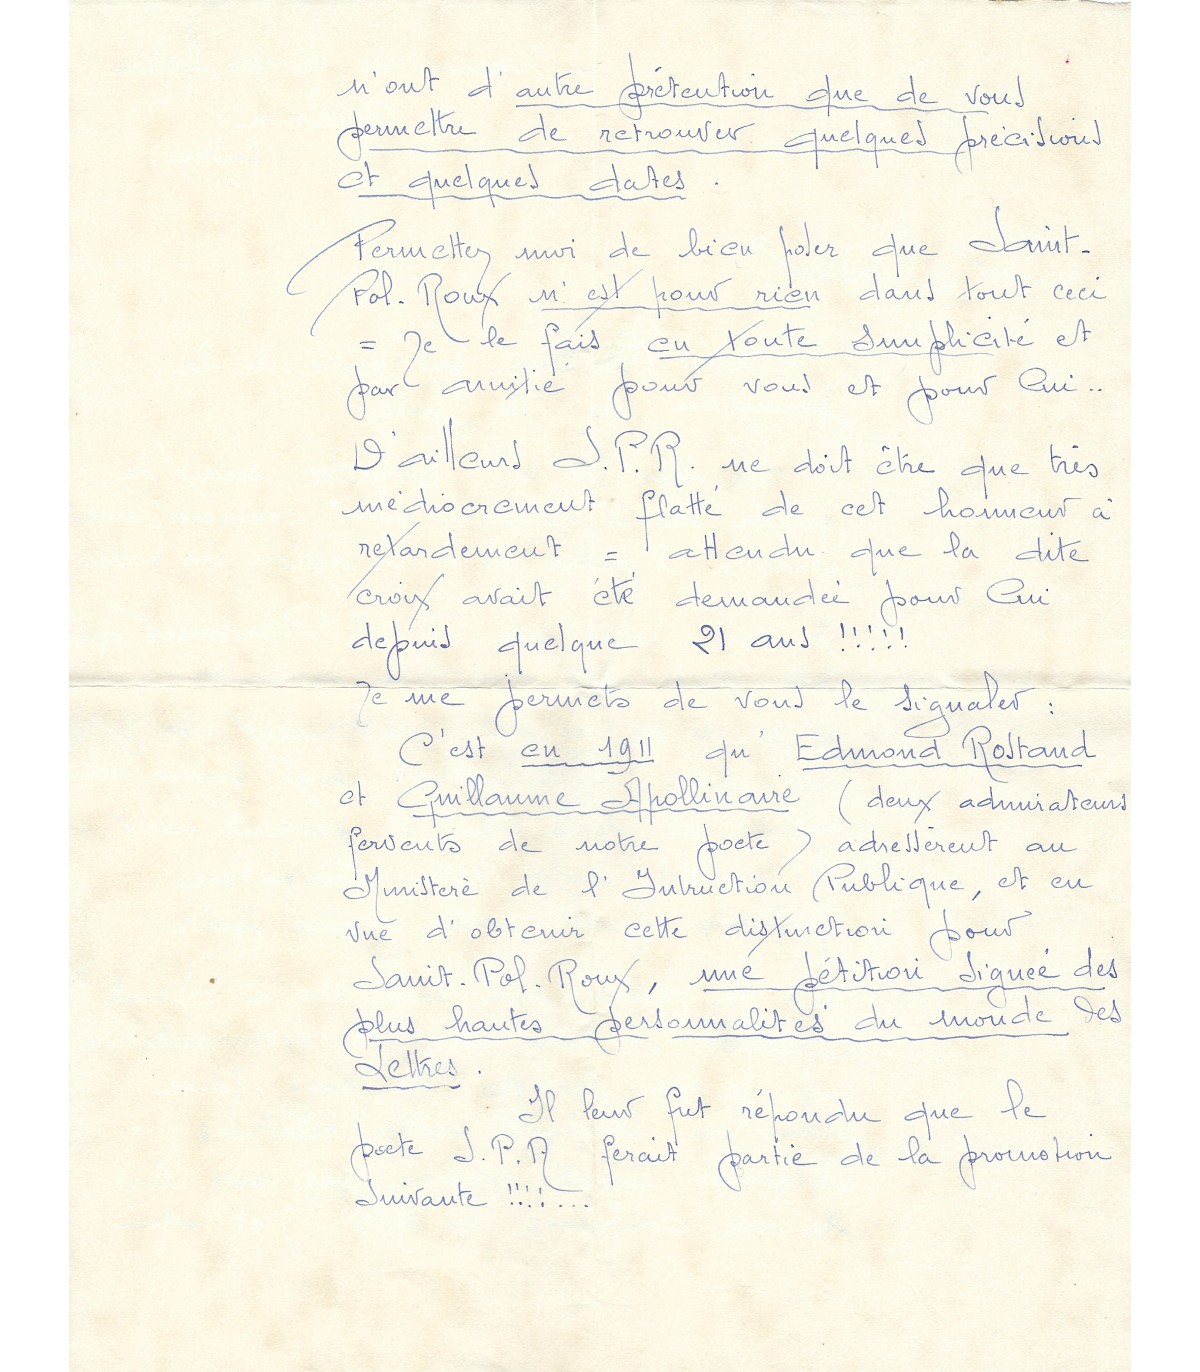 n'ont d'autre prétention que de vous
permettre de retrouver quelques précisions
et quelques dates.
Permettez moi de bien poser que Saint-
Pol. Roux n'est pour rien dans tout ceci
= Je le fais en toute simplicité et
par amitié pour vous et pour lui..
D'ailleurs S.P.R. ne doit être que très
médiocrement flatté de cet honneur à
retardement = attendu que la dite
croix avait été demandée pour lui
depuis quelque 21 ans !!!!!
Je me permets de vous le signaler :
C'est en 1911 qu'Edmond Rostand
et Guillaume Apollinaire (deux admirateurs
fervents de notre poète) adressèrent au
Ministère de l'Intruction Publique, et en
vue d'obtenir cette distinction pour
Saint. Pol. Roux, une pétition signée des
plus hautes personnalités du monde des
Lettres.
Il leur fut répondu que le
poète S.P.R ferait partie de la promotion
suivante !!!!...